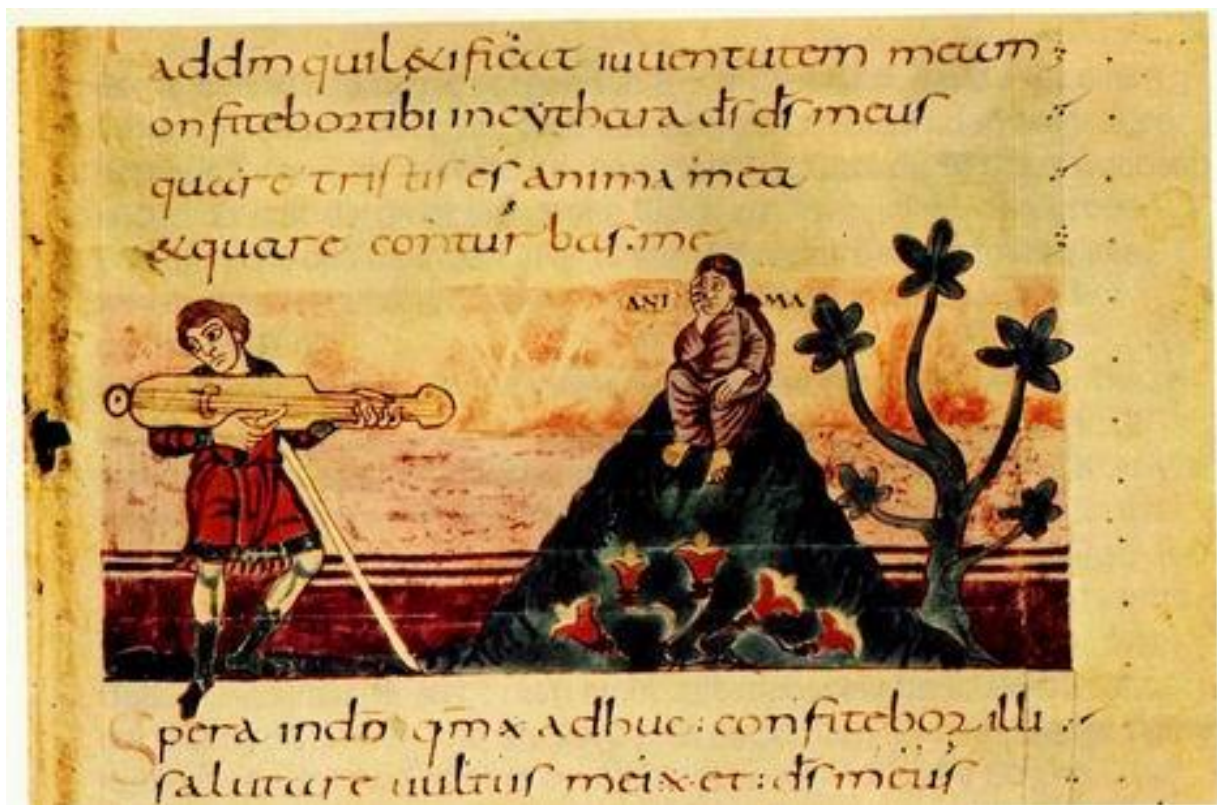 addm qui l&ificat iuuentutem meam
onfitebor tibi in cythara ds ds meus
quare tristis es anima mea
& quare conturbas me
ANI MA
Spera in do qmx adhuc: confitebor illi
salutare uultus mei x et: ds meus